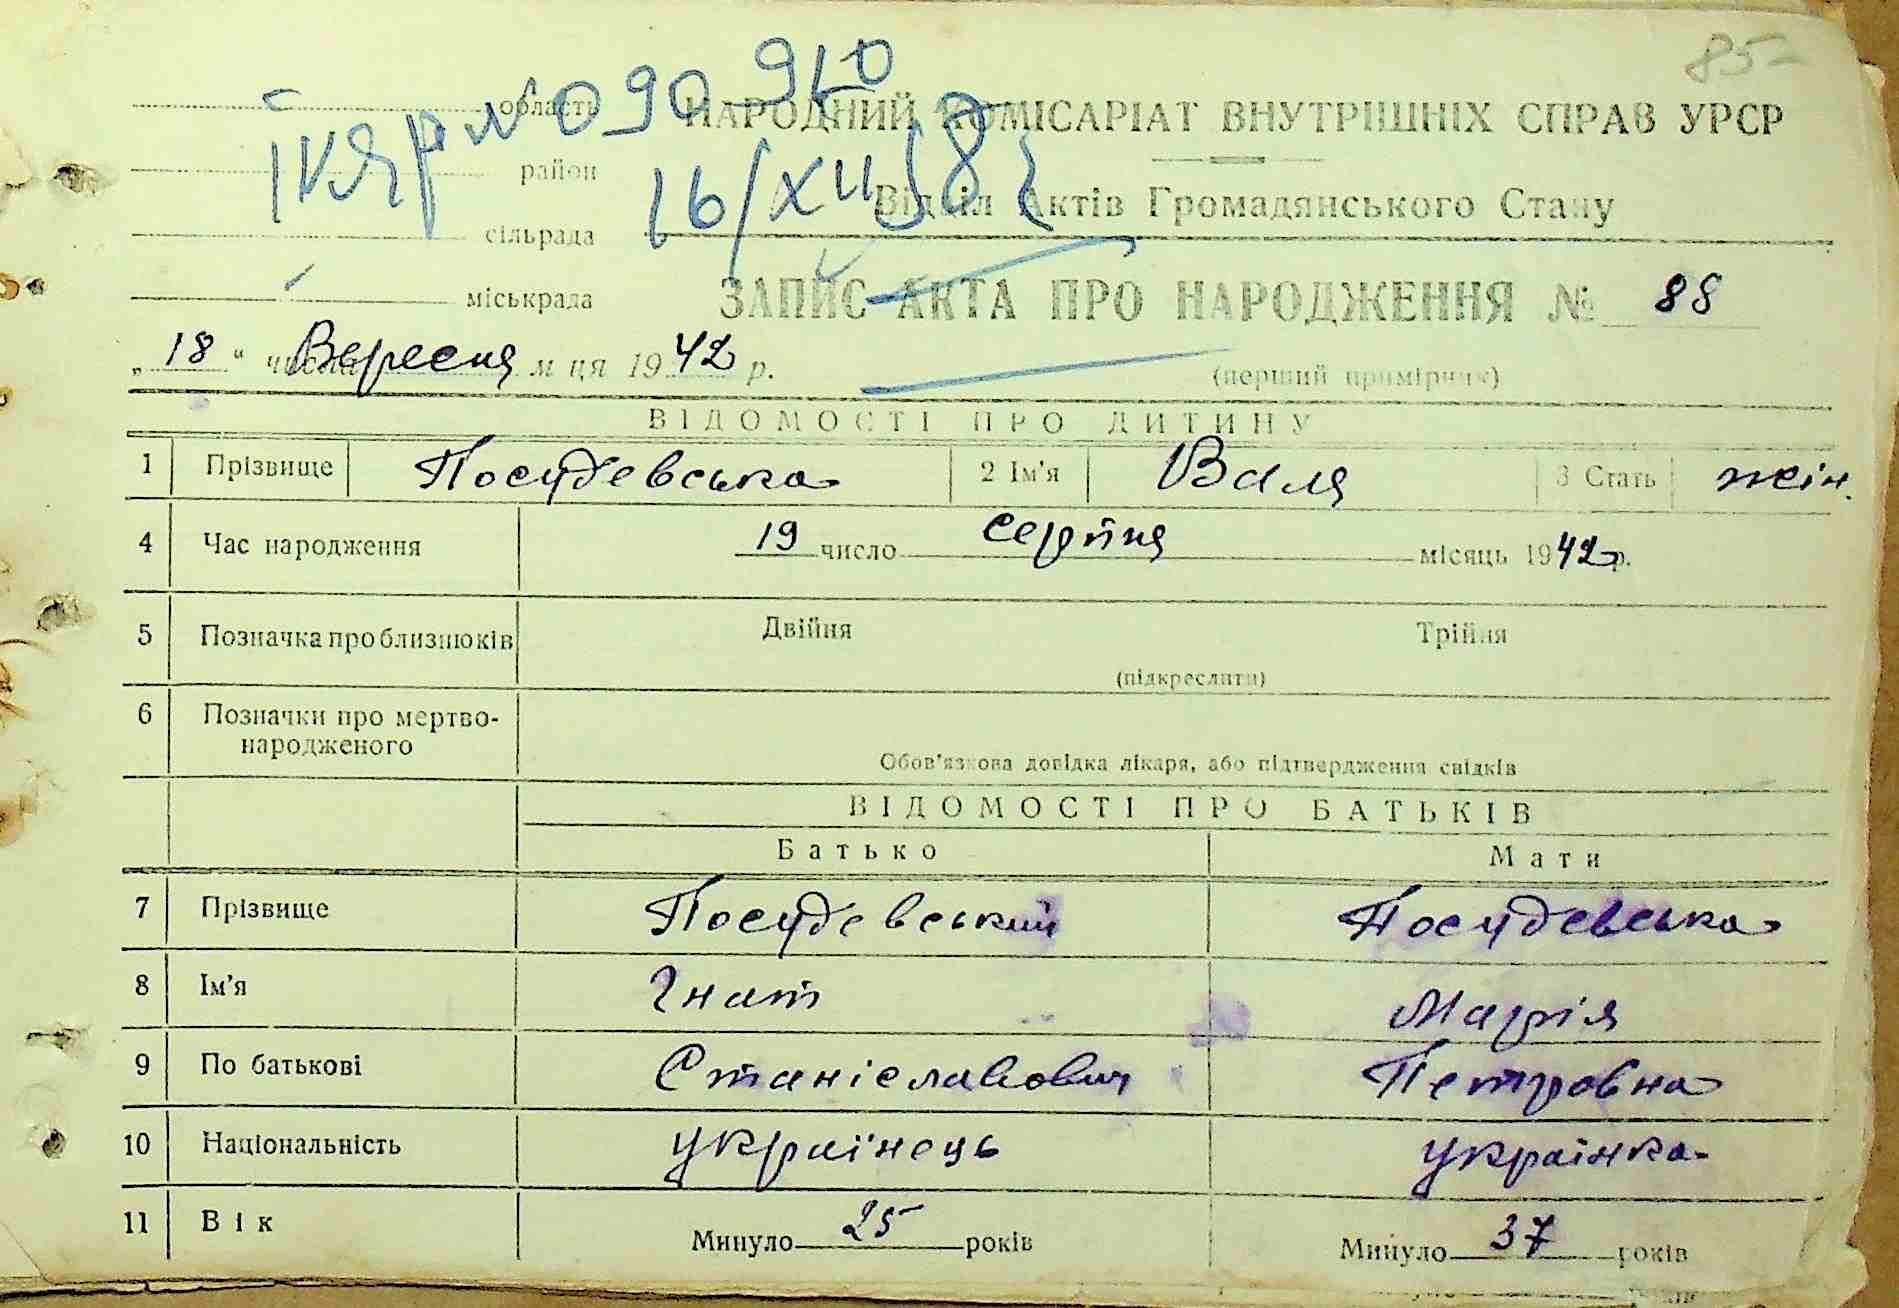 85
область
НАРОДНИЙ КОМІСАРІАТ ВНУТРІШНІХ СПРАВ УРСР
район
16/XII
Відділ Актів Громадянського Стану
сільрада
міськрада
ЗАПИС АКТА ПРО НАРОДЖЕННЯ № 88
„18“ числа Вересня м ця 1942 р.
(перший примірник)
ВІДОМОСТІ ПРО ДИТИНУ
1 Прізвище Посудевська 2 Ім'я Валя 3 Стать жін.
4 Час народження 19 число серпня місяць 1942 р.
5 Позначка про близнюків Двійня Трійня
(підкреслити)
6 Позначки про мертво-
народженого
Обов'язкова довідка лікаря, або підтвердження свідків
ВІДОМОСТІ ПРО БАТЬКІВ
Батько Мати
7 Прізвище Посудевський Посудевська
8 Ім'я Гнат Марія
9 По батькові Станіславович Петровна
10 Національність українець українка
11 Вік Минуло 25 років Минуло 37 років